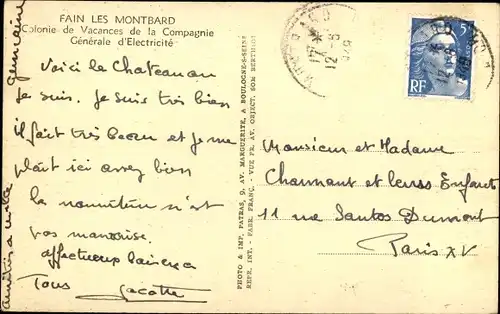 FAIN LES MONTBARD
Colonie de Vacances de la Compagnie
Générale d'Electricité
Germaine
Voici le Chateau où
je suis. Je suis très bien
il fait très beau et je me
plait ici assez bien
la nourriture n'est
pas mauvaise.
affectueux baisers a
Tous Jacotte
amitiés a
PHOTO & IMP. PATRAS, 9, AV. MARGUERITE, A BOULOGNE-S-SEINE
REPR. INT. FABR. FRANÇ. VUE PR. AV. OBJECT. SOM BERTHIOT
12-8
RF
Monsieur et Madame
Charmant et leurs Enfants
11 rue Santos Dumont
Paris XV